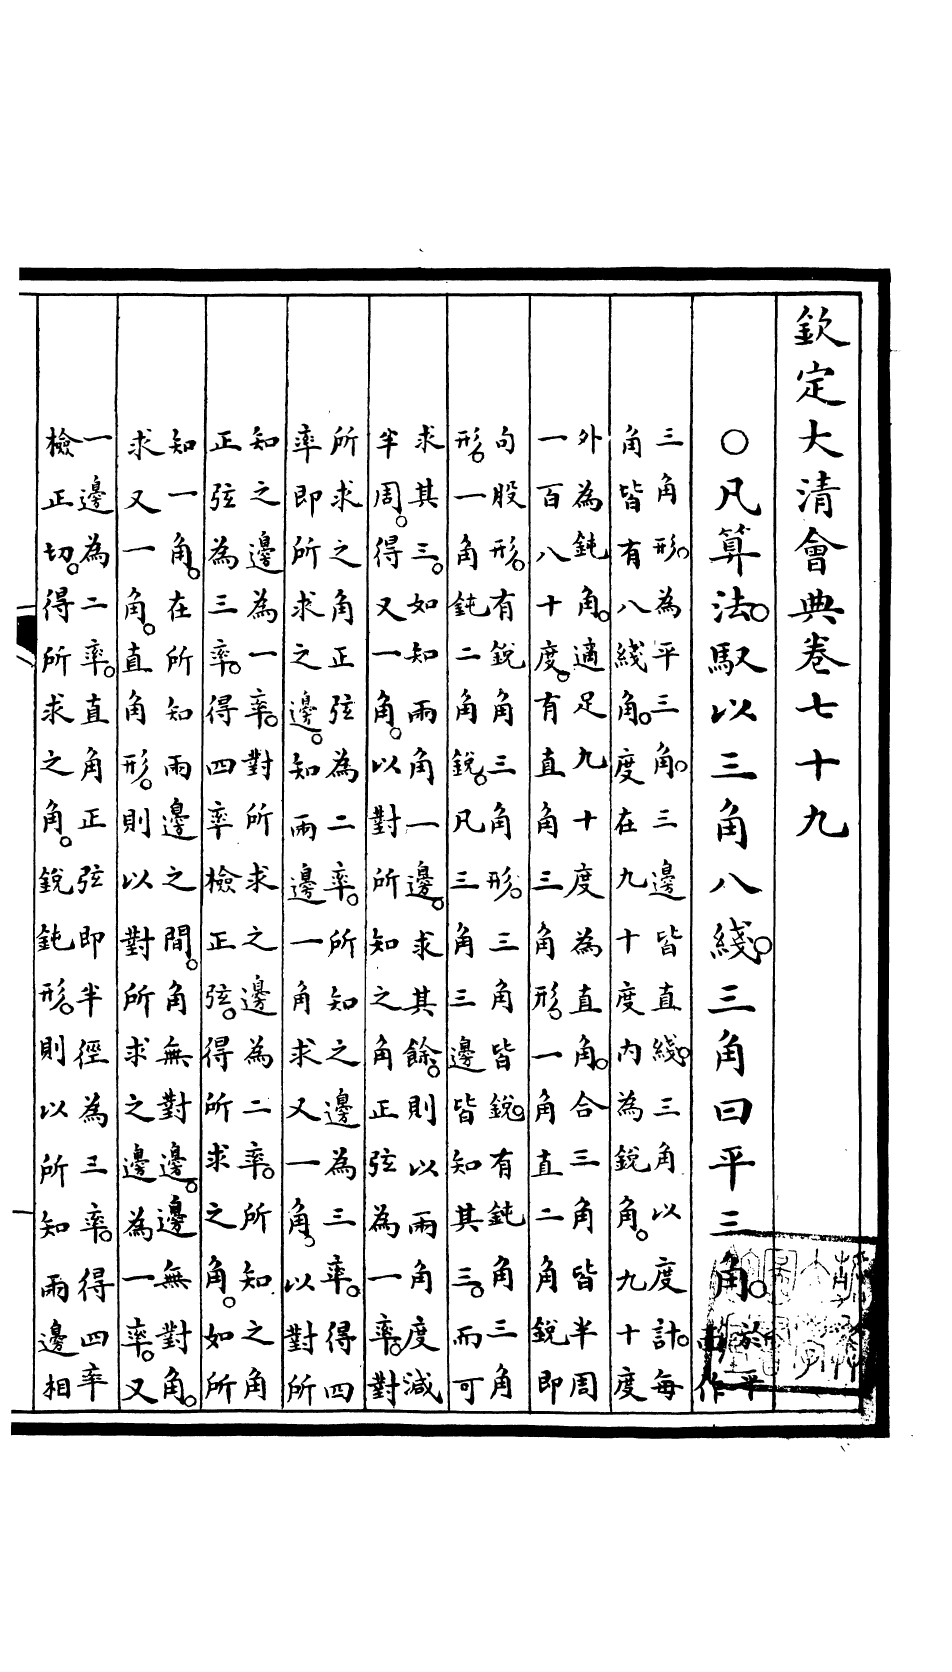 欽定大清會典卷七十九
○凡算法。馭以三角八綫。三角曰平三角。於平
面作
三角形。為平三角。三邊皆直綫。三角以度計。每
角皆有八綫角。度在九十度內為銳角。九十度
外為鈍角。適足九十度為直角。合三角皆半周
一百八十度。有直角三角形。一角直二角銳即
句股形。有銳角三角形。三角皆銳。有鈍角三角
形。一角鈍二角銳。凡三角三邊皆知其三。而可
求其三。如知兩角一邊。求其餘。則以兩角度減
半周。得又一角。以對所知之角正弦為一率。對
所求之角正弦為二率。所知之邊為三率。得四
率即所求之邊。知兩邊一角求又一角。以對所
知之邊為一率。對所求之邊為二率。所知之角
正弦為三率。得四率檢正弦。得所求之角。如所
知一角。在所知兩邊之間。角無對邊。邊無對角。
求又一角。直角形。則以對所求之邊為一率。又
一邊為二率。直角正弦即半徑為三率。得四率
檢正切。得所求之角。銳鈍形。則以所知兩邊相